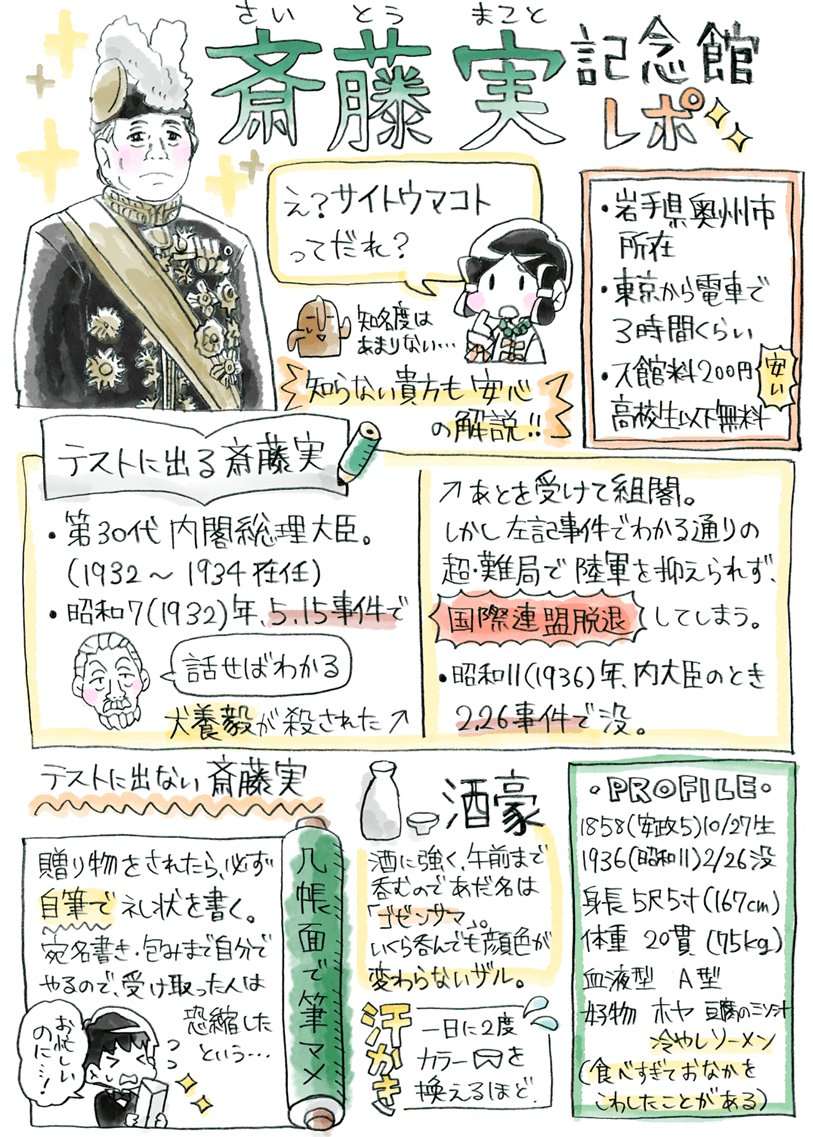 さい とう まこと
斎藤 実 記念館
レポ
え?サイトウマコト
ってだれ?
知名度は
あまりない…
知らない貴方も安心
の解説!!
・岩手県奥州市
所在
・東京から電車で
3時間くらい
・入館料200円
安い
高校生以下無料
テストに出る斎藤実
・第30代内閣総理大臣。
(1932～1934在任)
・昭和7(1932)年、5.15事件で
話せばわかる
犬養毅が殺された↗
↗あとを受けて組閣。
しかし左記事件でわかる通りの
超・難局で陸軍を抑えられず、
国際連盟脱退してしまう。
・昭和11(1936)年、内大臣のとき
2.26事件で没。
テストに出ない斎藤実
贈り物をされたら、必ず
自筆で礼状を書く。
宛名書き・包みまで自分で
やるので、受け取った人は
恐縮した
という…
お忙しい
のに…!
几帳面で筆マメ
酒豪
酒に強く、午前まで
呑むのであだ名は
「ゴゼンサマ」。
いくら呑んでも顔色が
変わらないザル。
汗かき
一日に2度
カラーを
換えるほど。
・PROFILE・
1858(安政5)10/27生
1936(昭和11)2/26没
身長 5尺5寸(167cm)
体重 20貫 (75kg)
血液型 A型
好物 ホヤ 豆腐のミソ汁
冷やしソーメン
(食べすぎておなかを
こわしたことがある)